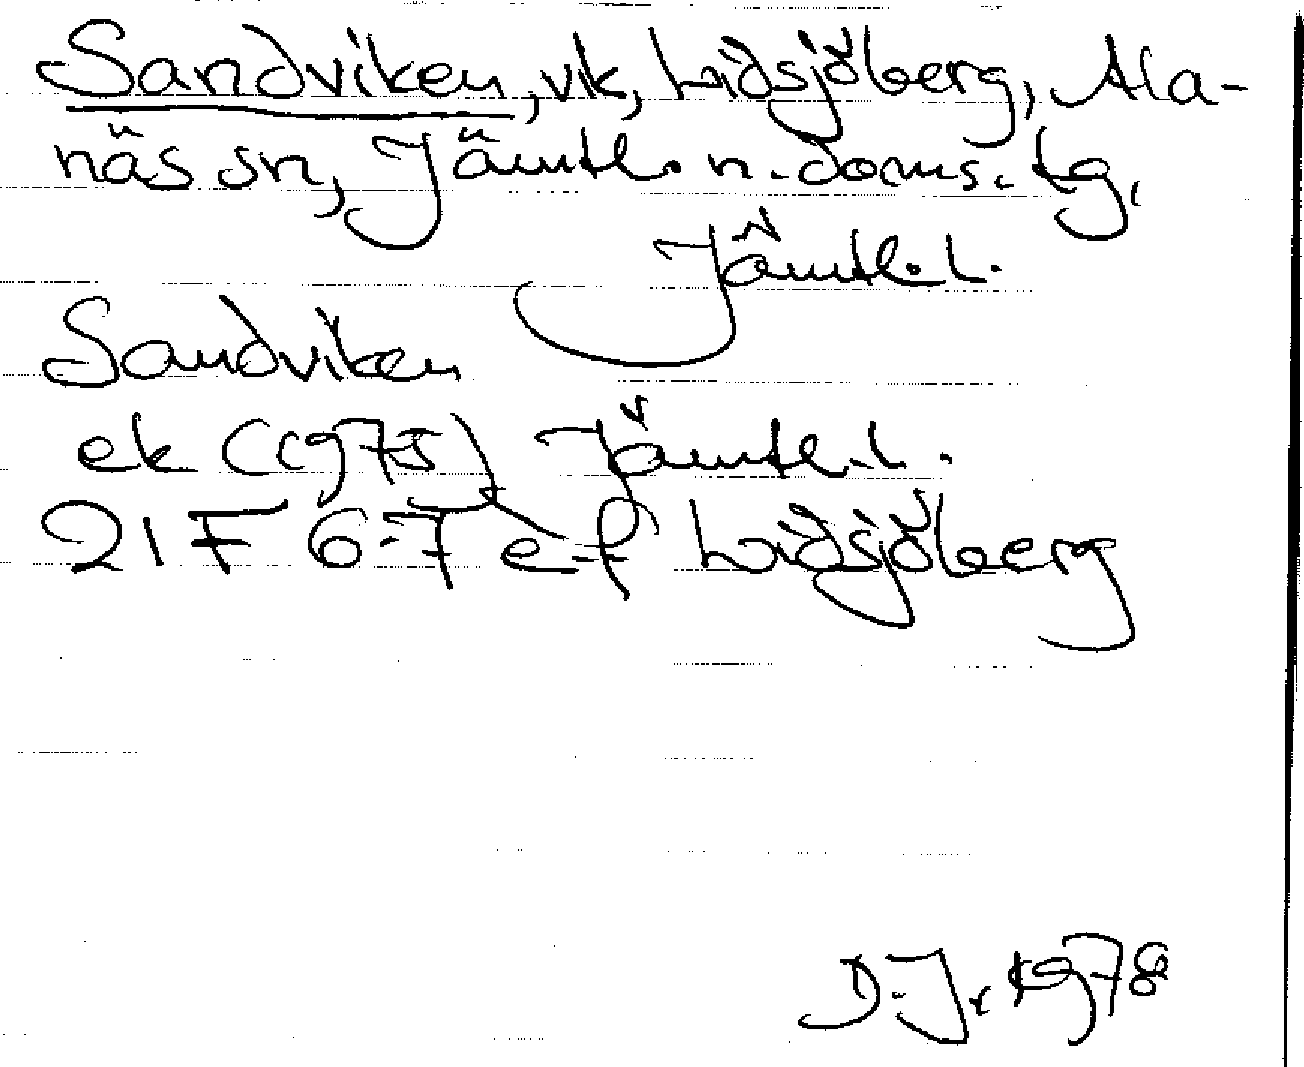 Sandviken, vik, Lidsjöberg, Ala-
näs sn, Jämtl. n. doms. tg,
Jämtl. l.
Sandviken
ek (1975) Jämtl. l.
21F 6-7 e-f Lidsjöberg
D. J. 1978